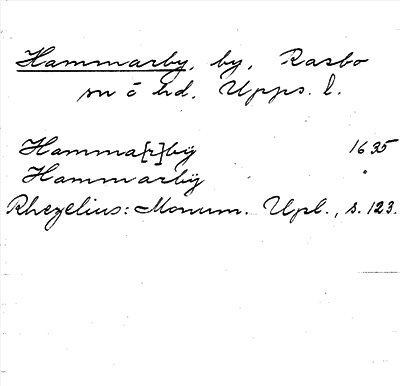 Hammarby, by, Rasbo
sn o hd, Upps. l.
Hamma[r]bÿ 1635
Hammarbÿ "
Rhezelius: Monum. Upl., s. 123.